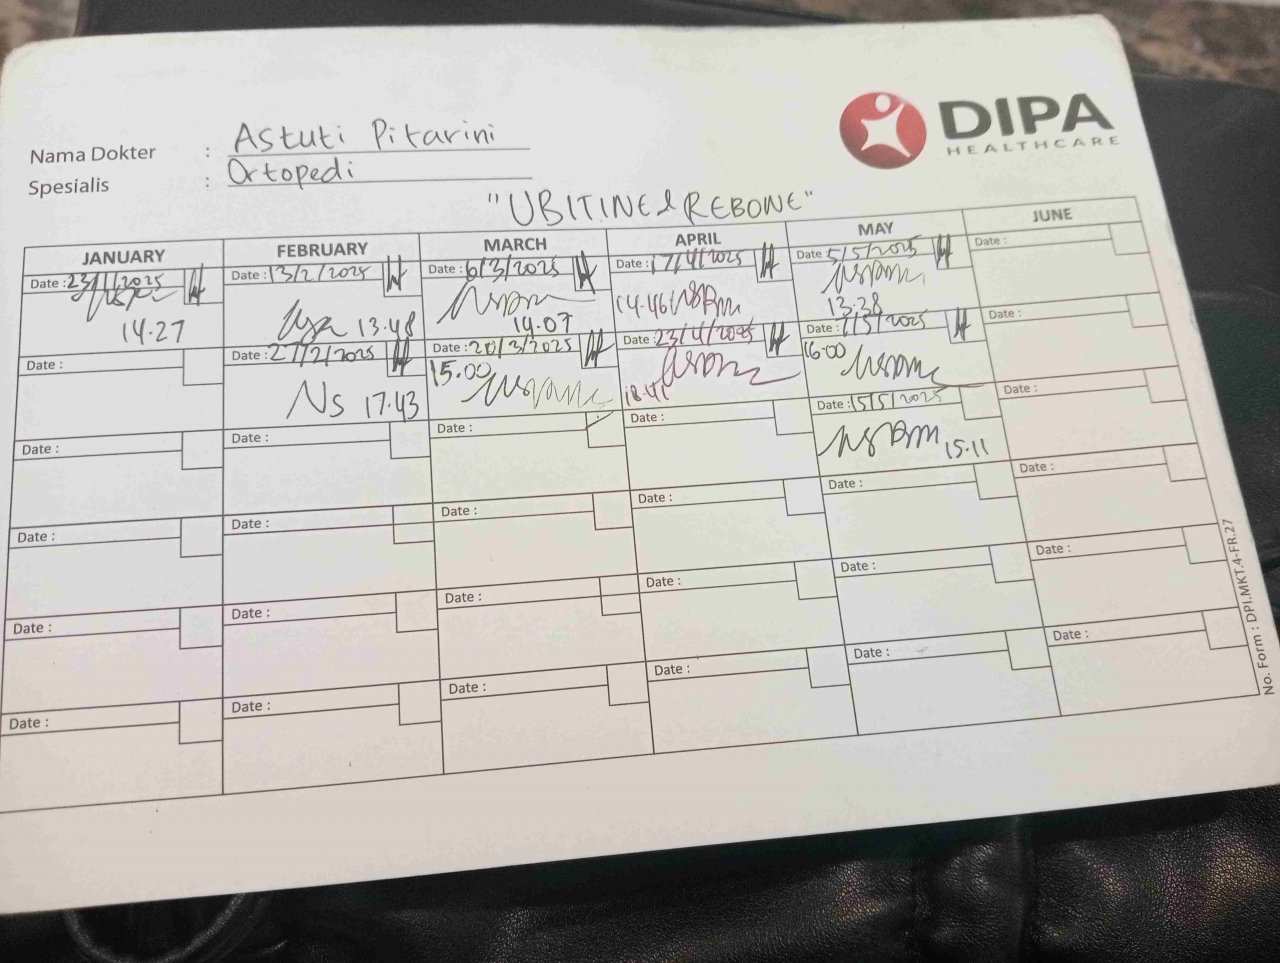 DIPA
HEALTHCARE
Nama Dokter : Astuti Pitarini
Spesialis : Ortopedi
"UBITINE & REBONE"
JANUARY FEBRUARY MARCH APRIL MAY JUNE
Date : 23/1/2025 Date : 13/2/2025 Date : 6/3/2025 Date : 17/4/2025 Date 5/5/2025 Date :
14.27 13.48 14.07 14.46 13.38
Date : Date : 27/2/2025 Date : 20/3/2025 Date : 23/4/2025 Date : /5/2025 Date :
Ns 17.43 15.00 18.41 16.00
Date : Date : Date : Date : Date : 15/5/2025 Date :
15.11
Date : Date : Date : Date : Date : Date :
Date : Date : Date : Date : Date : Date :
Date : Date : Date : Date : Date : Date :
No. Form : DPI.MKT.4-FR.27